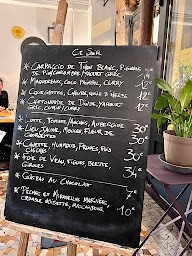 Ce Jour
* Carpaccio de Thon Blanc, Pignons
de Pin/Gingembre/Yaourt Grec 14€
* Maquereaux, Coco, Curry. 12€
* Courgettes, Chèvre, Huile d'Herbe 12€
* Cartonnade de Dinde, Yaourt
Grec Citron/Curry 12€
* Lotte, Tomate/Ananas, Aubergine 30€
* Lieu Jaune, Moules, Fleur de
Courgettes 30€
* Canette, Houmous, Prunes, Pois
Chiches 30€
* Foie de Veau, Figues, Blette,
Girolles 34€
* Gâteau au Chocolat 7€
* Pêche et Mirabelle Marinée,
Crumble Noisette, Mascarpone 10€